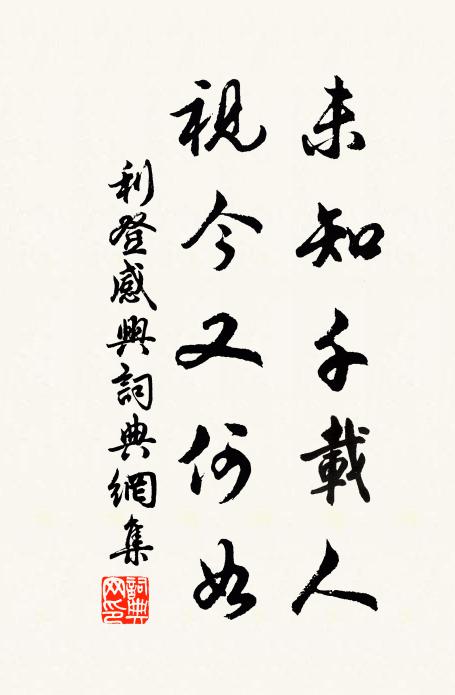 未知千載人
視今又何如
利登感興詞典網集
詞典
网印